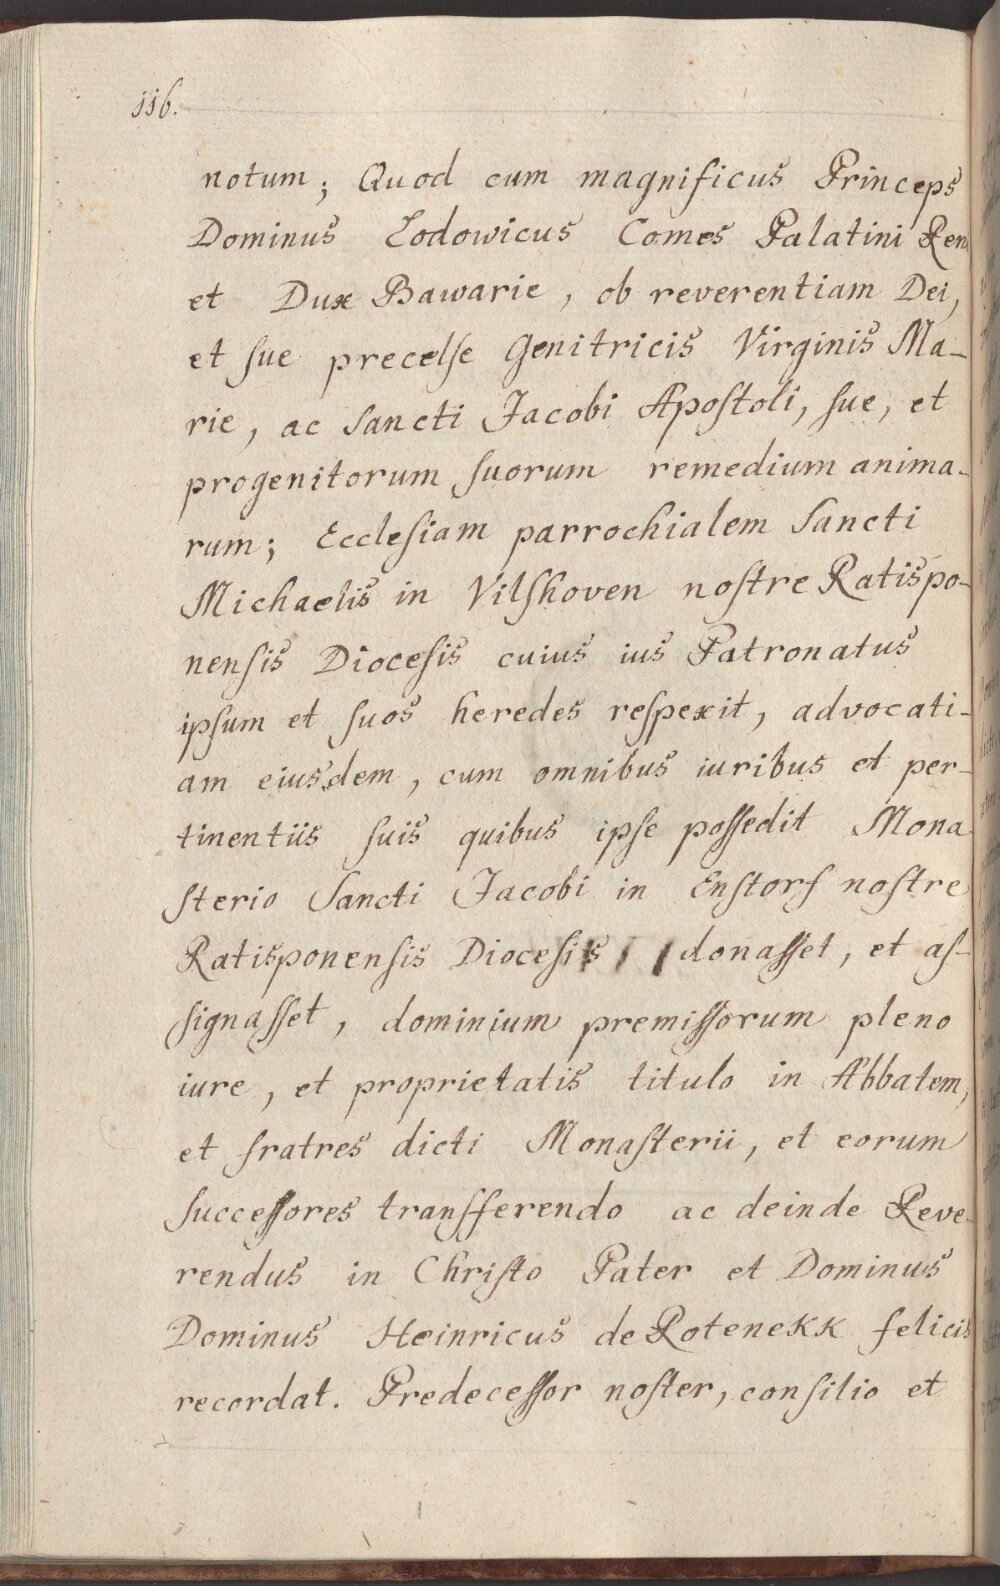 116.
notum; Quod cum magnificus Princeps
Dominus Lodowicus Comes Palatini Ren
et Dux Bawarie, ob reverentiam Dei,
et ſue precelſe Genitricis Virginis Ma-
rie, ac Sancti Jacobi Apoſtoli, ſue, et
progenitorum ſuorum remedium anima-
rum; Eccleſiam parrochialem Sancti
Michaelis in Vilſhoven noſtre Ratispo-
nenſis Dioceſis cuius ius Patronatus
ipſum et ſuos heredes reſpexit, advocati-
am eiusdem, cum omnibus iuribus et per-
tinentiis ſuis quibus ipſe poſſedit Mona
ſterio Sancti Jacobi in Enſtorf noſtre
Ratisponenſis Dioceſis donaſſet, et aſ-
ſignaſſet, dominium premiſſorum pleno
iure, et proprietatis titulo in Abbatem,
et fratres dicti Monaſterii, et eorum
ſucceſſores tranſferendo ac deinde Reve-
rendus in Chriſto Pater et Dominus
Dominus Heinricus de Rotenekk felicis
recordat. Predeceſſor noſter, conſilio et